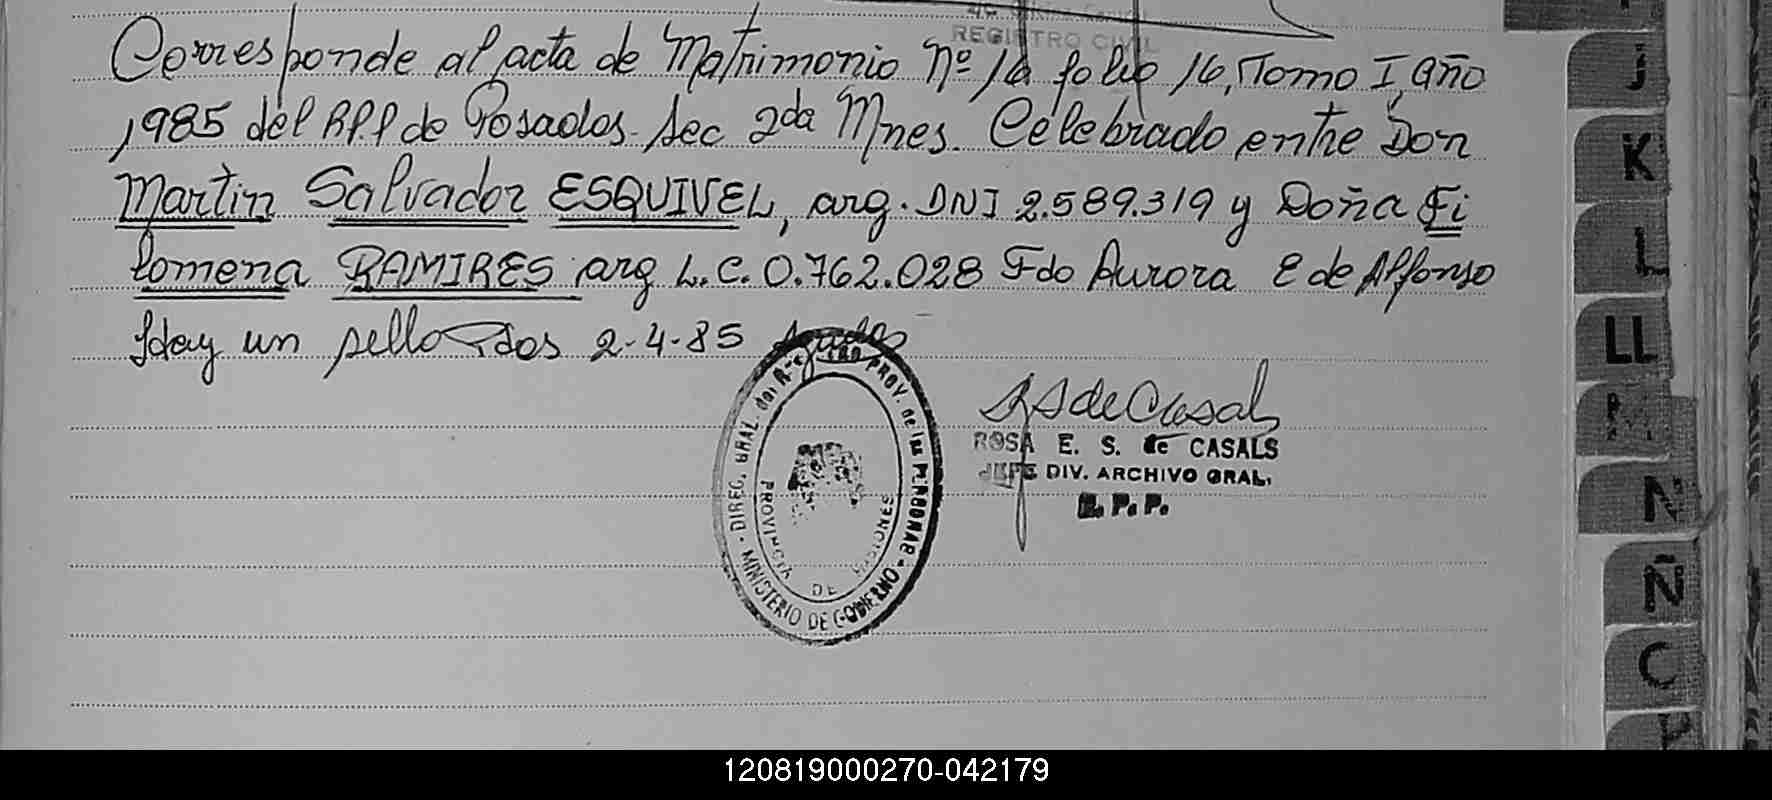 REGISTRO CIVIL
Corresponde al acta de Matrimonio Nº 16 folio 16, Tomo I, año
1985 del R.P.P de Posadas. Sec 2da Mnes. Celebrado entre Don
Martin Salvador ESQUIVEL, arg. DNI 2.589.319 y Doña Fi
lomena RAMIRES arg L.C. 0.762.028 Fdo Aurora E de Alfonso
Hay un sello Pdas 2-4-85
DIREC. GRAL. del Registro PROV. de las PERSONAS - MINISTERIO DE GOBIERNO -
PROVINCIA DE MISIONES
ROSA E. S. de CASALS
JEFE DIV. ARCHIVO GRAL.
R. P. P.
J
K
L
LL
M
N
Ñ
O
P
120819000270-042179